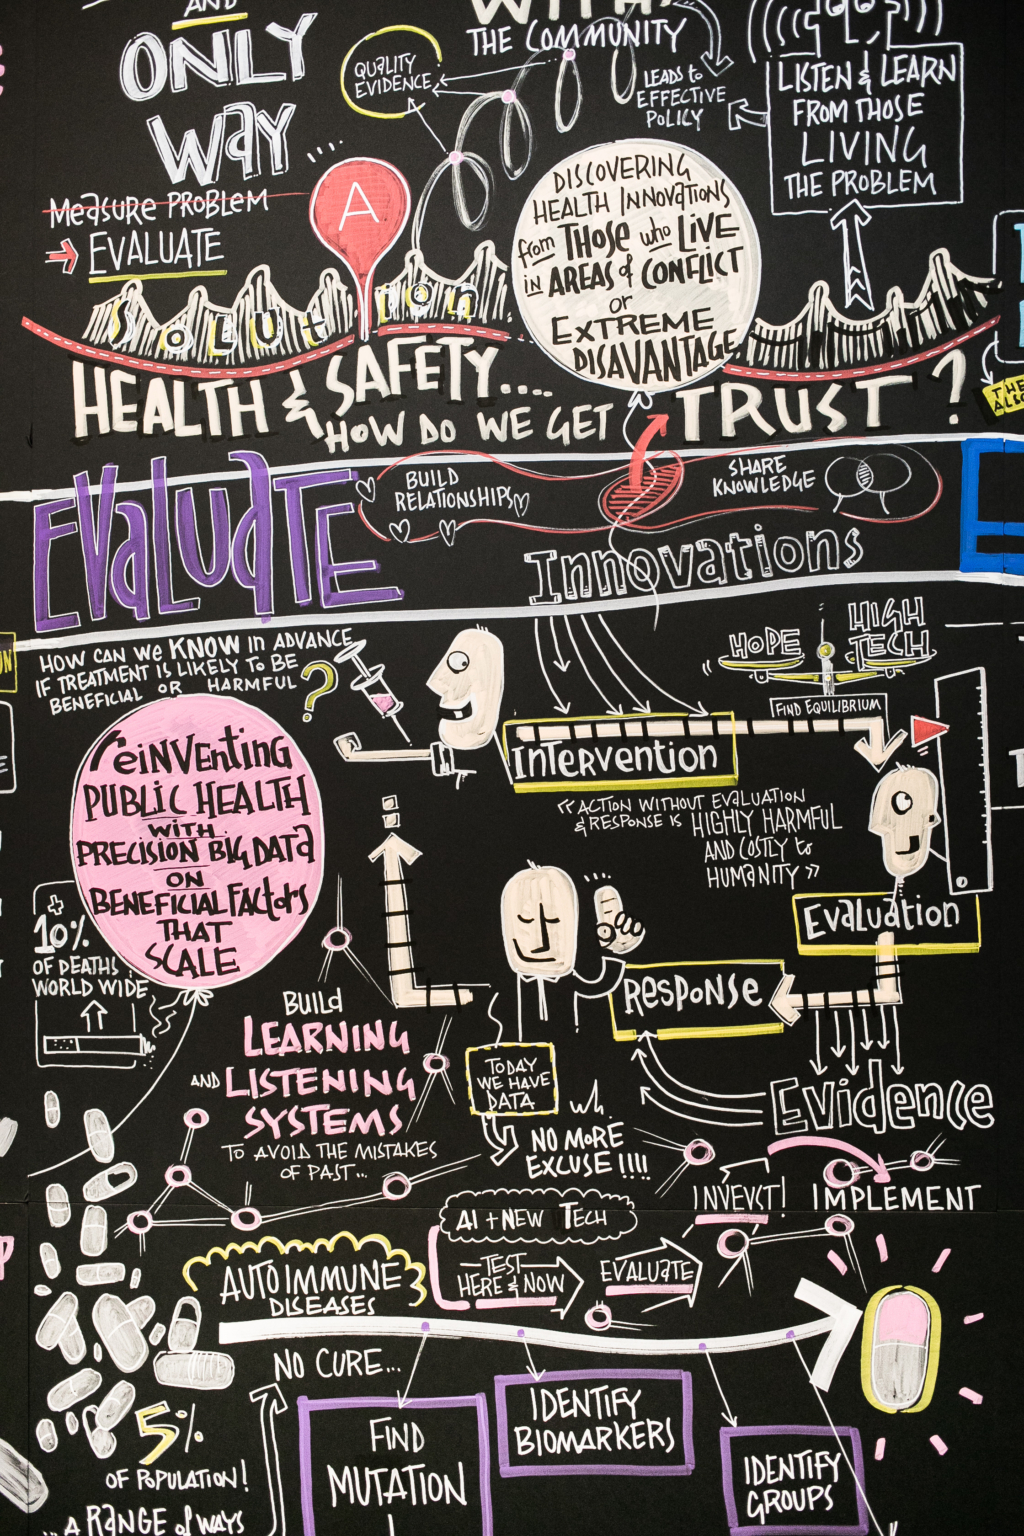 AND
ONLY
WAY
Measure PROBLEM
EVALUATE
WITH
THE COMMUNITY
QUALITY
EVIDENCE
LEADS to
EFFECTIVE
POLICY
LISTEN & LEARN
FROM THOSE
LIVING
THE PROBLEM
A
DISCOVERING
HEALTH INNOVATIONS
from THOSE who LIVE
in AREAS of CONFLICT
or
EXTREME
DISAVANTAGE
SOLUTION
HEALTH & SAFETY....
HOW DO WE GET TRUST?
THE
EVALUATE
BUILD
RELATIONSHIPS
SHARE
KNOWLEDGE
Innovations
HOW CAN WE KNOW IN ADVANCE
IF TREATMENT IS LIKELY TO BE
BENEFICIAL OR HARMFUL
?
HOPE
HIGH
TECH
FIND EQUILIBRIUM
INTERVENTION
reINVENTING
PUBLIC HEALTH
WITH
PRECISION BIG DATA
ON
BENEFICIAL FACTORS
THAT
SCALE
« ACTION WITHOUT EVALUATION
& RESPONSE IS HIGHLY HARMFUL
AND COSTLY to
HUMANITY »
+
10%
OF DEATHS
WORLD WIDE
EVALUATION
RESPONSE
BUILD
LEARNING
AND LISTENING
SYSTEMS
TO AVOID THE MISTAKES
OF PAST...
TODAY
WE HAVE
DATA
uh.
NO MORE
EXCUSE !!!!
Evidence
INVEVCT!
IMPLEMENT
AI + NEW TECH
TEST
HERE & NOW
EVALUATE
AUTOIMMUNE
DISEASES
NO CURE...
5%
OF POPULATION!
...A RANGE of WAYS
FIND
MUTATION
IDENTIFY
BIOMARKERS
IDENTIFY
GROUPS